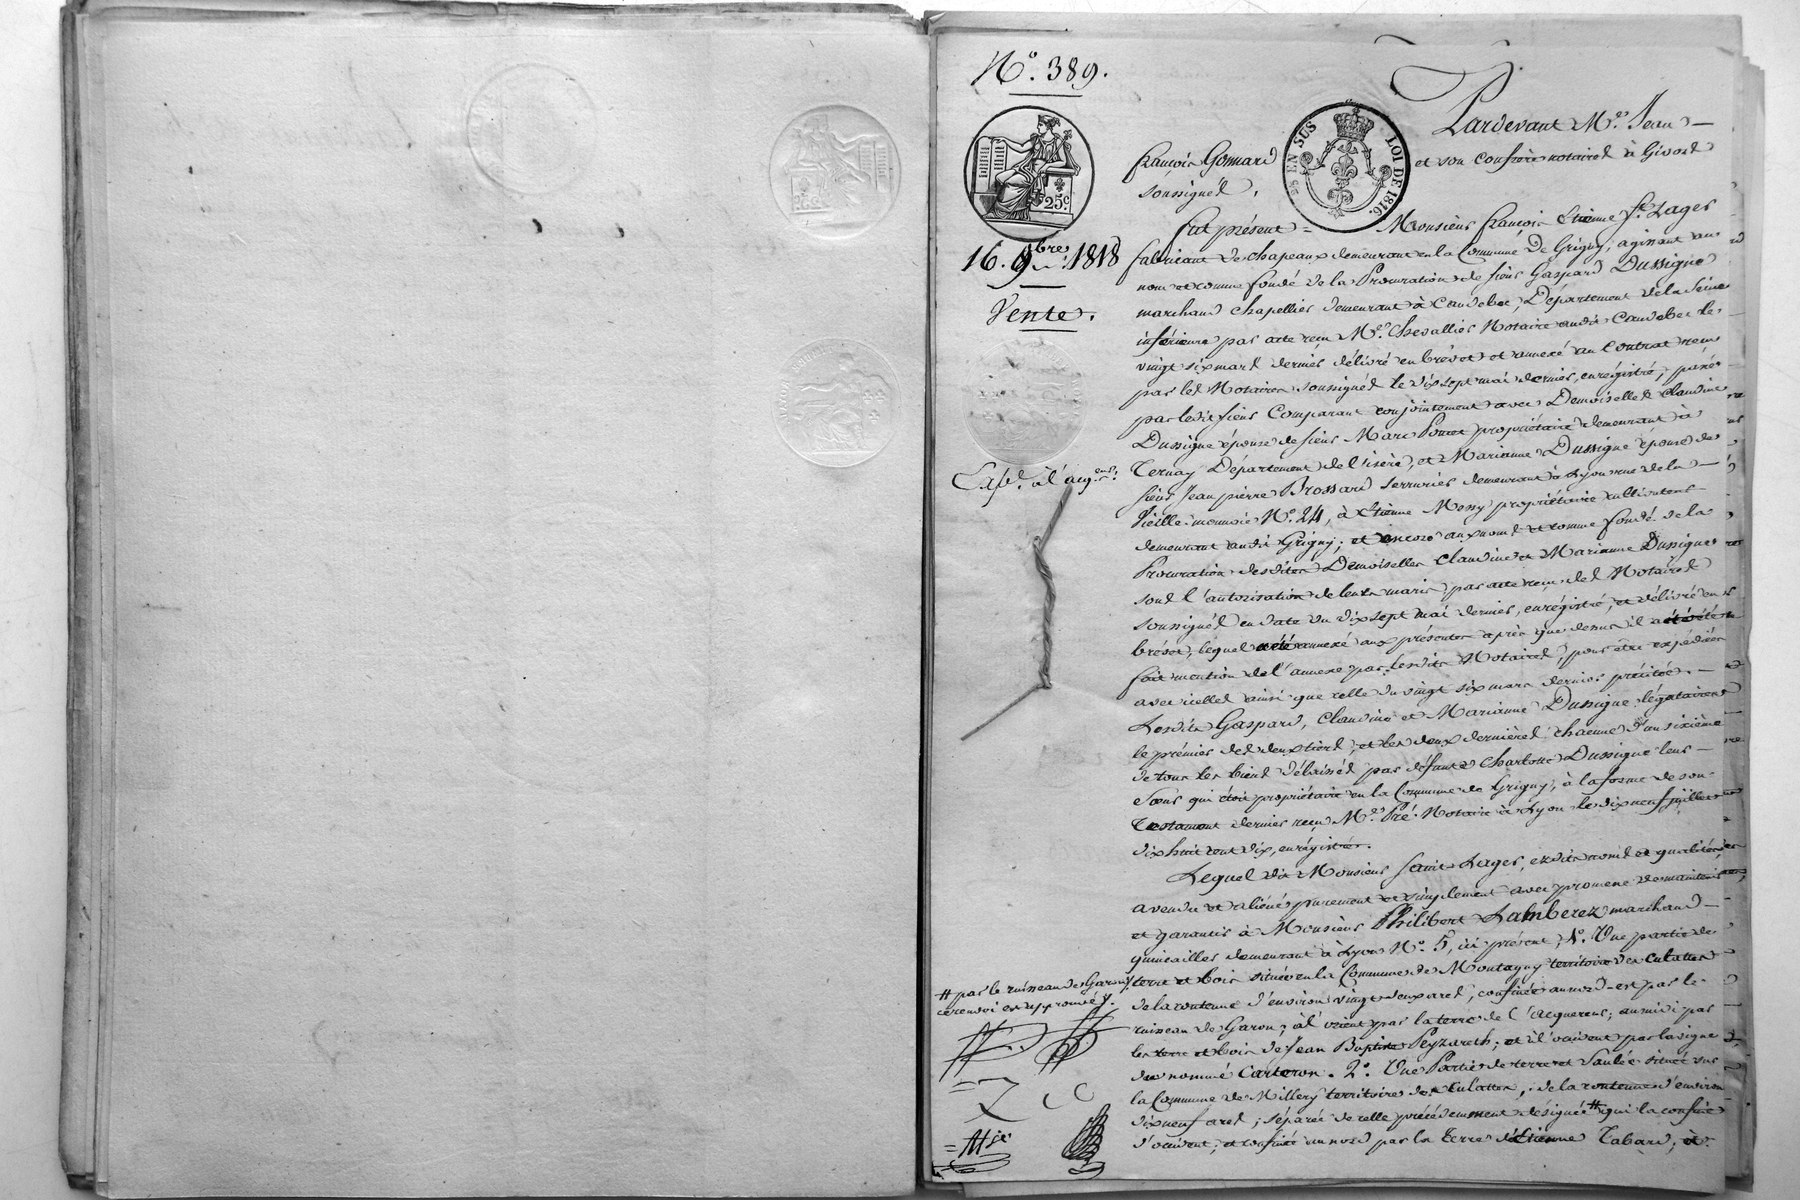 N.º 389.
25 EN SUS LOI DE 1816.
25.c
Pardevant M.e Jean
François Gomard et son confrère notaires à Givors
soussignés,
16. 9bre 1818
Vente.
Fut présent = Monsieur François Etienne St. Lager
fabricant de chapeaux demeurant en la Commune de Grigny, agissant au
nom et comme fondé de la Procuration de sieur Gaspard Dussigne
marchand chapellier demeurant à Caudebec, Département de la Seine
inférieure par acte reçu M.e Chevallier Notaire audit Caudebec le
vingt six mars dernier délivré en brevet et annexé au Contrat reçu
par les Notaires soussignés le dix sept mai dernier, enregistré, passé
par ledit sieur Comparant conjointement avec Demoiselles Claudine
Dussigne épouse de sieur Marc Poncet propriétaire demeurant à
Ternay Département de l'isère, et Marianne Dussigne épouse de
Exp.é à l'acq.eur
sieur Jean pierre Brossard serrurier demeurant à Lyon rue de la
Vieille monnoie N.º 24, à Etienne Mony propriétaire cultivateur
demeurant audit Grigny; et encore aux noms et comme fondé de la
Procuration desdites Demoiselles Claudine et Marianne Dussigne
sous l'autorisation de leurs maris, par acte reçu des Notaires
soussignés en date du dix sept mai dernier, enregistré, et délivré en
brevet, lequel a été annexé aux présentes après que dessus il a été
fait mention de l'annexe par lesdits Notaires, pour être expédiées
avec icelles ainsi que celle du vingt six mars dernier précitée.
Lesdits Gaspard, Claudine et Marianne Dussigne, légataires
le prémier des deux tiers, et les deux dernières chacune d'un sixième
de tous les biens délaissés par défunte Charlotte Dussigne leur
Soeur qui étoit propriétaire en la Commune de Grigny, à la forme de son
Testament dernier reçu M.e Pré. Notaire à Lyon le dix neuf juillet
dix huit cent dix, enregistré.
Lequel dit Monsieur Saint Lager, esdits noms et qualités,
a vendu et aliéné purement et simplement avec promesse de maintenir
et garantir à Monsieur Philibert Lamberez marchand
quincailler demeurant à Lyon N.º 5, ici présent, 1.º Une partie de
terre et bois située en la Commune de Montagny territoire des culattes
de la contenue d'environ vingt deux ares, confinée au nord-est par le
ruisseau de Garon; à l'orient par la terre de l'acquereur; au midi par
les terre et bois de Jean Baptiste Peyzareth; et à l'occident par la vigne
du nommé Carteron. 2.º Une Partie de terre et Saulée située sur
la Commune de Millery territoire des Culattes, de la contenue d'environ
dix neuf ares; séparée de celle précédemment désignée # qui la confine
d'occident; et confinée au nord par la terre d'Etienne Tabard; à
# par le ruisseau de Garon,
ce renvoi est approuvé.